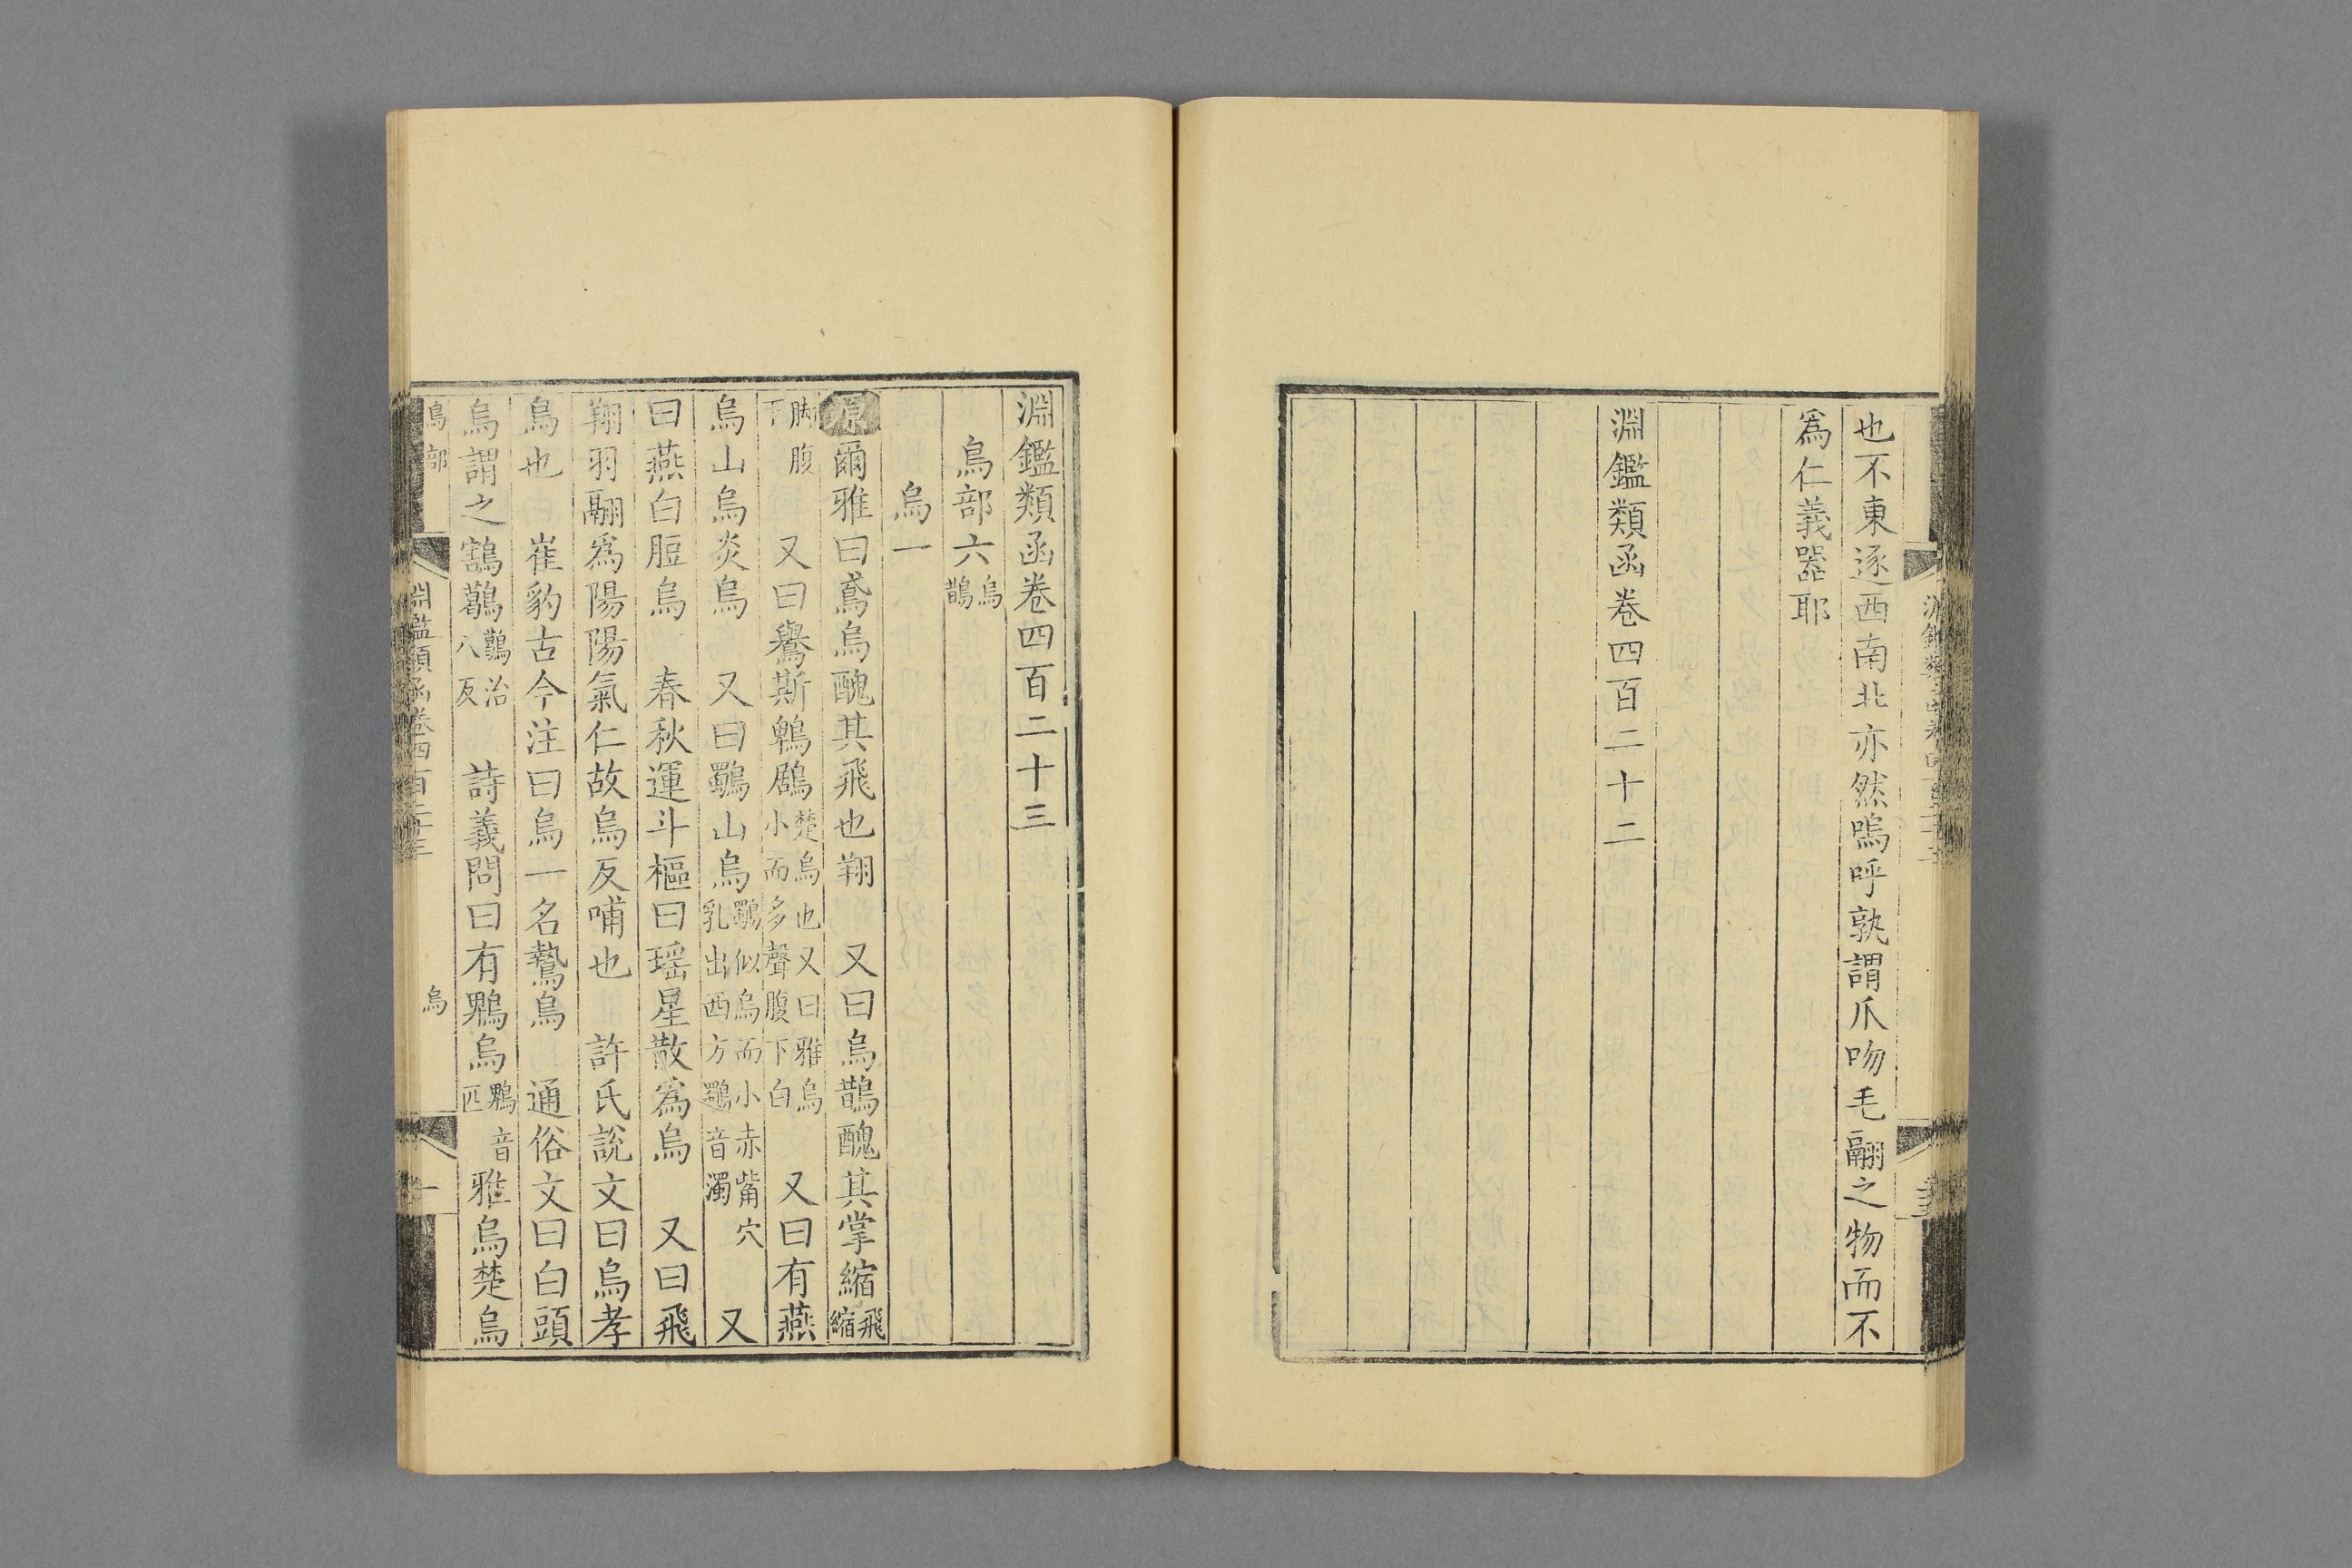 也不東逐西南北亦然嗚呼孰謂爪吻毛翮之物而不
爲仁義器耶
淵鑑類函卷四百二十二
淵鑑類函卷四百二十三
鳥部六烏鵲
烏一
原爾雅曰鳶烏醜其飛也翔　又曰烏鵲醜其掌縮飛縮
脚腹下　又曰鸒斯鵯鶋楚烏也又曰雅烏小而多聲腹下白　又曰有燕
烏山烏炎烏　又曰鸀山烏鸀似烏而小赤觜穴乳出西方鸀音濁　又
曰燕白脰烏　春秋運斗樞曰瑶星散爲烏　又曰飛
翔羽翮爲陽陽氣仁故烏反哺也　許氏說文曰烏孝
烏也　崔豹古今注曰烏一名鷙烏　通俗文曰白頭
烏謂之鶷鶷八治反　詩義問曰有鸅烏匹音雅烏楚烏
鳥部　淵鑑類函卷四百二十三　烏　一